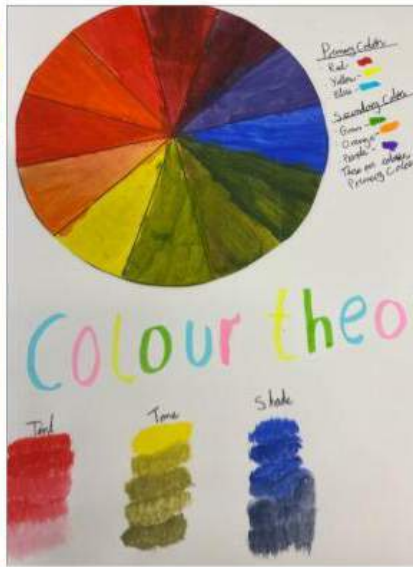 Primary Colors
Red -
Yellow -
Blue -
Secondary Colors
Green -
Orange -
Purple -
These are colours
Primary Colou
Colour theo
Tint
Tone
Shade